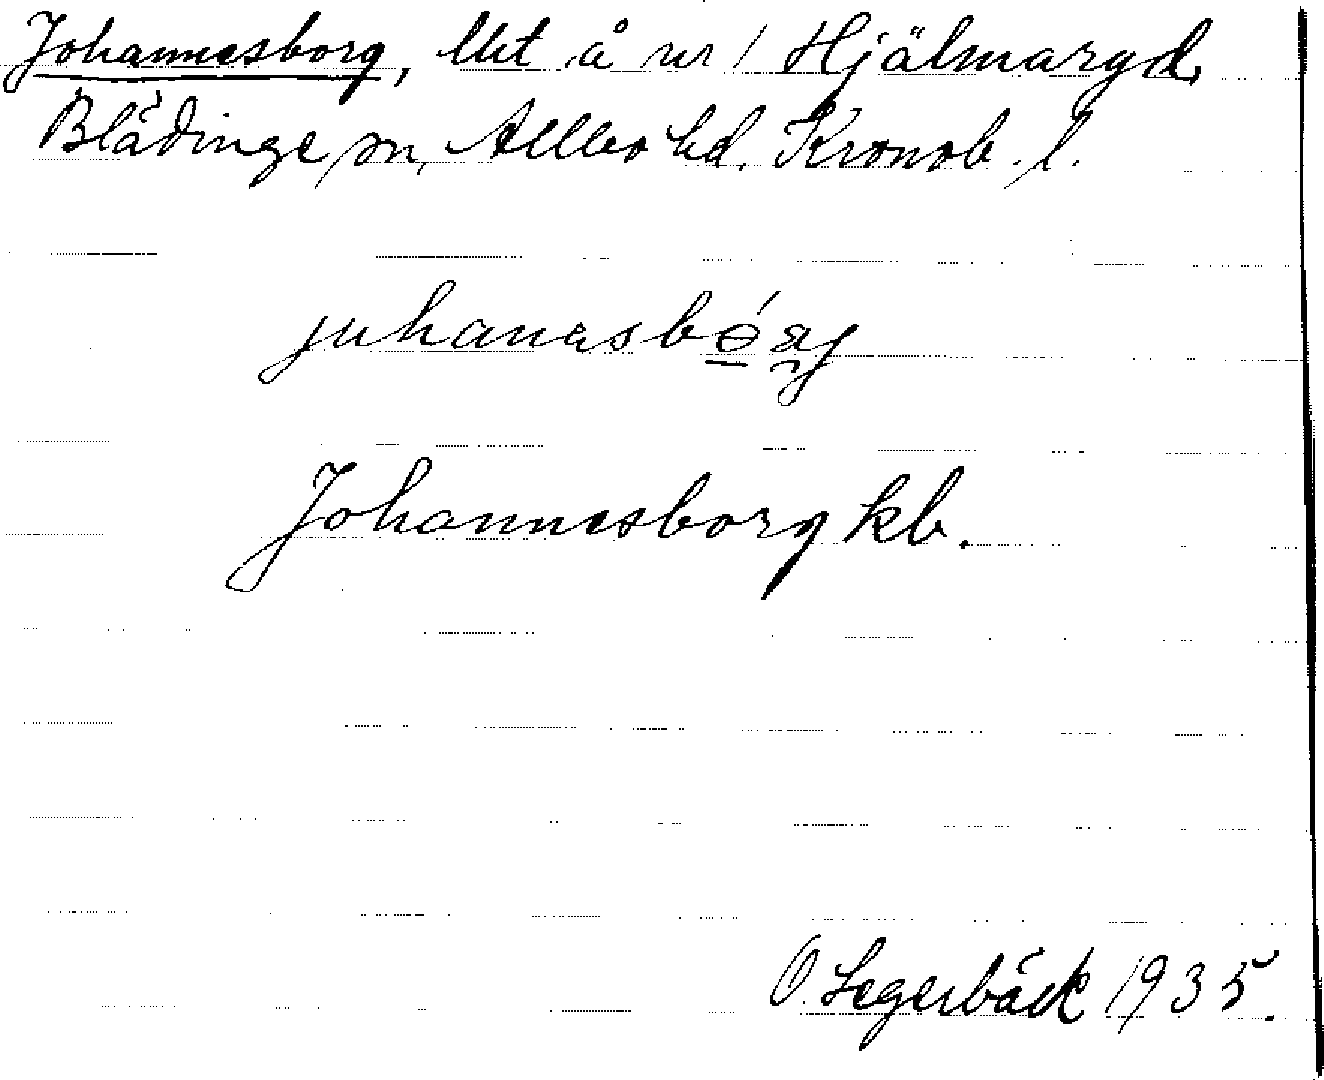 Johannesborg, lht å nr 1 Hjälmaryd,
Blädinge sn, Allbo hd. Kronob. l.
Johannesborg kb.
O. Segerbäck 1935.